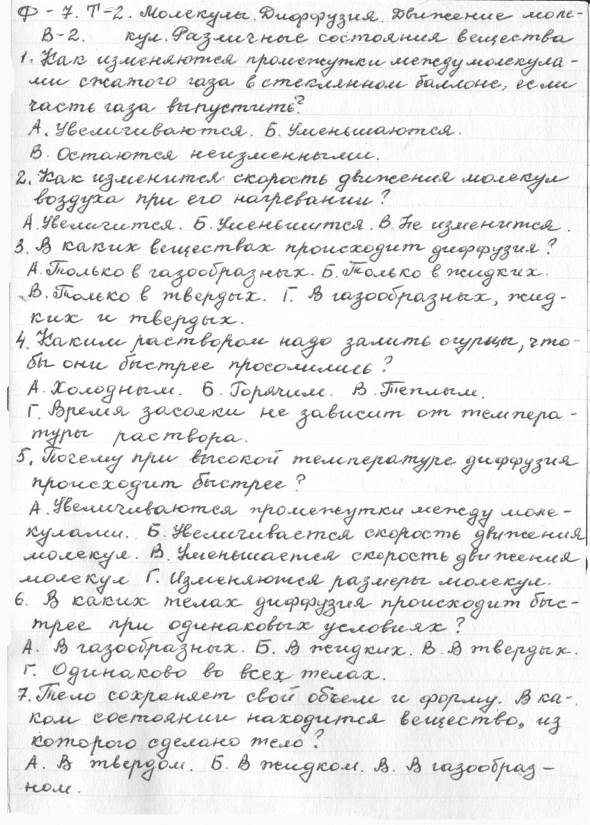 Ф-7. Т-2. Молекулы. Диффузия. Движение моле-
В-2. кул. Различные состояния вещества
1. Как изменяются промежутки между молекула-
ми сжатого газа в стеклянном баллоне, если
часть газа выпустить?
А. Увеличиваются. Б. Уменьшаются.
В. Остаются неизменными.
2. Как изменится скорость движения молекул
воздуха при его нагревании?
А. Увеличится. Б. Уменьшится. В. Не изменится.
3. В каких веществах происходит диффузия?
А. Только в газообразных. Б. Только в жидких.
В. Только в твердых. Г. В газообразных, жид-
ких и твердых.
4. Каким раствором надо залить огурцы, что-
бы они быстрее просолились?
А. Холодным. Б. Горячим. В. Теплым.
Г. Время засолки не зависит от темпера-
туры раствора.
5. Почему при высокой температуре диффузия
происходит быстрее?
А. Увеличиваются промежутки между моле-
кулами. Б. Увеличивается скорость движения
молекул. В. Уменьшается скорость движения
молекул Г. Изменяются размеры молекул.
6. В каких телах диффузия происходит быс-
трее при одинаковых условиях?
А. В газообразных. Б. В жидких. В. В твердых.
Г. Одинаково во всех телах.
7. Тело сохраняет свой объем и форму. В ка-
ком состоянии находится вещество, из
которого сделано тело?
А. В твердом. Б. В жидком. В. В газообраз-
ном.